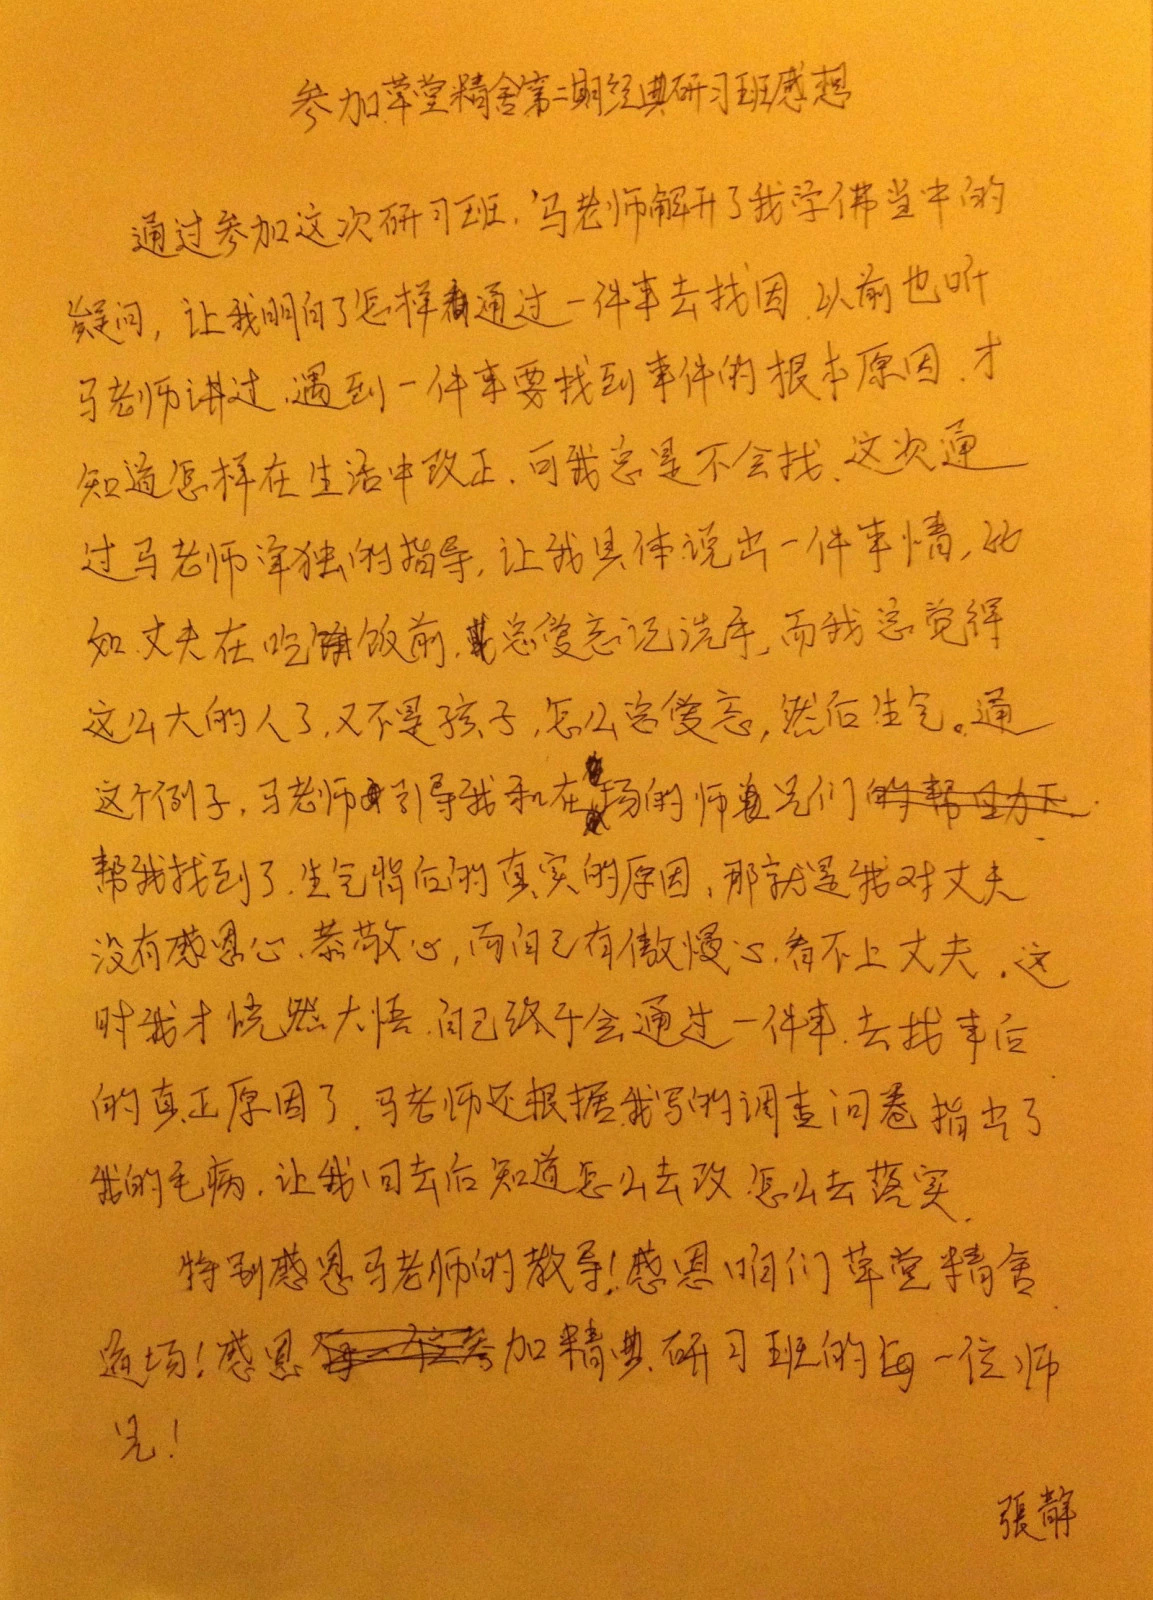 参加草堂精舍第二期经典研习班感想
通过参加这次研习班,马老师解开了我学佛当中的
疑问,让我明白了怎样通过一件事去找因.以前也听
马老师讲过,遇到一件事要找到事件的根本原因,才
知道怎样在生活中改正.可我总是不会找.这次通
过马老师单独的指导,让我具体说出一件事情,比
如丈夫在吃饭前,总爱忘记洗手,而我总觉得
这么大的人了,又不是孩子,怎么总爱忘,然后生气。通
这个例子,马老师引导我和在场的师兄们
帮我找到了.生气背后的真实的原因,那就是我对丈夫
没有感恩心.恭敬心,而自己有傲慢心.看不上丈夫.这
时我才恍然大悟.自己终于会通过一件事.去找事后
的真正原因了.马老师还根据我写的调查问卷指出了
我的毛病.让我回去后知道怎么去改.怎么去落实.
特别感恩马老师的教导!感恩咱们草堂精舍
道场!感恩参加精典研习班的每一位师
兄!
張静